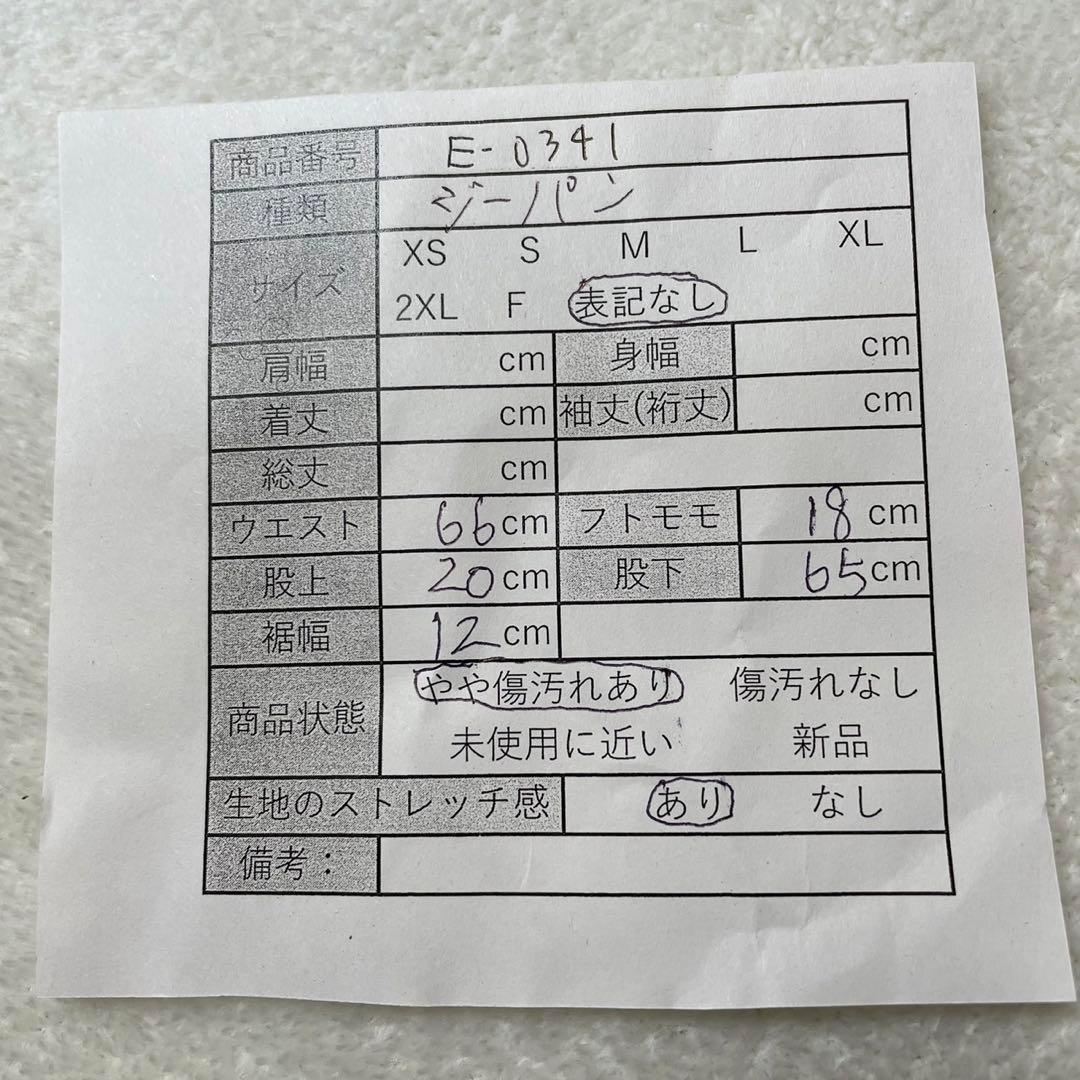 商品番号 E-0341
種類 ジーパン
サイズ XS S M L XL
2XL F 表記なし
肩幅 cm 身幅 cm
着丈 cm 袖丈(裄丈) cm
総丈 cm
ウエスト 66cm フトモモ 18cm
股上 20cm 股下 65cm
裾幅 12cm
商品状態 やや傷汚れあり 傷汚れなし
未使用に近い 新品
生地のストレッチ感 あり なし
備考：